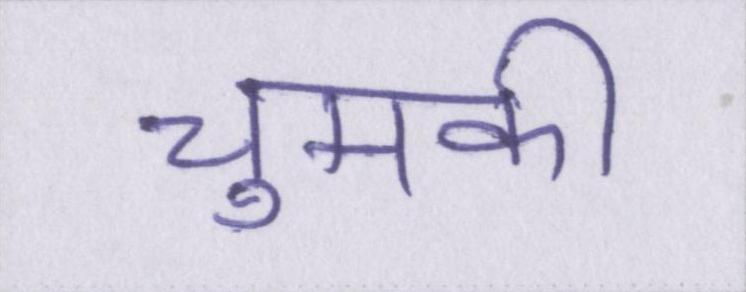 चुमकी